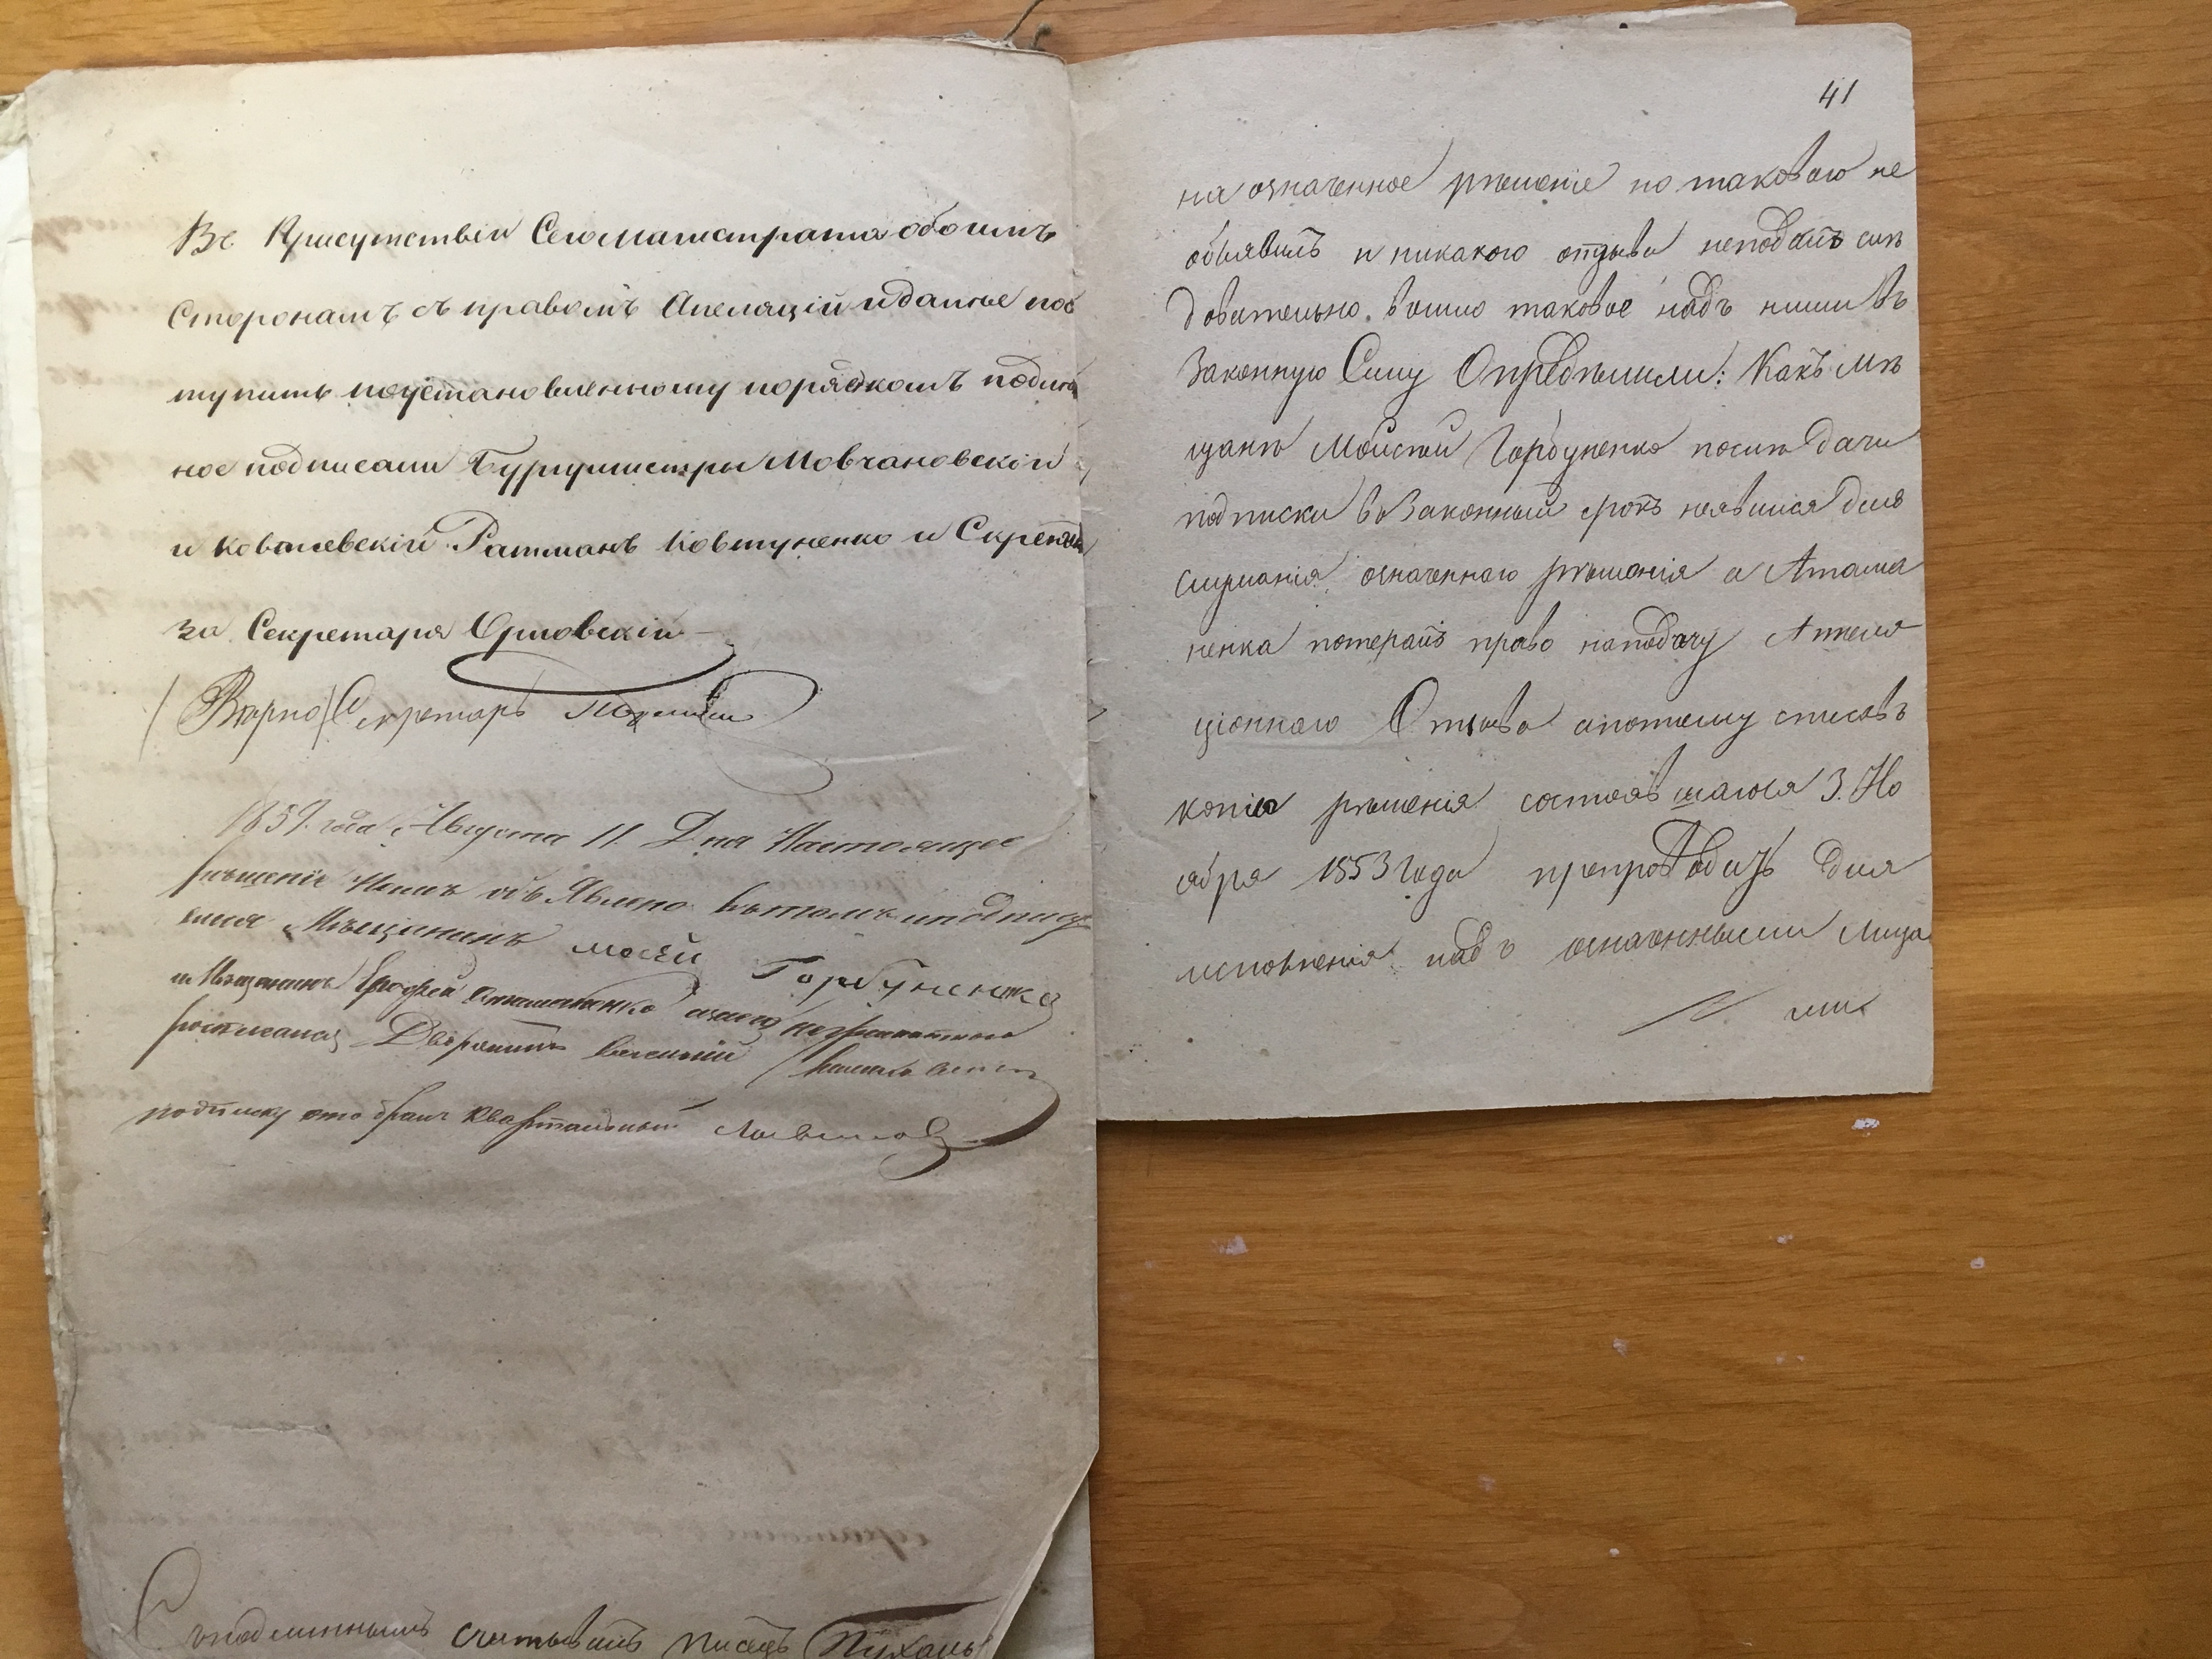 Въ Присутствіи Сего Магистрата обоимъ
Сторонамъ съ правомъ Апеляціи и далее пос
тупить поустановленному порядкомъ подлин
ное подписали Бургумистры Мовчановскій
и Ковалевскій Ратманъ Ковтуненко и Скрепилъ
за Секретаря Орловскій
Верно Секретарь
185 года Августа 11 Дня Настоящее
решеніе Намъ объявлено вътомъ иподписуе
мся Мещининъ мосѣй Горбуненко
и Мещанинъ Ерофей Атаманенко
росписался Дворянинъ
подписку отобралъ Квартальный
Съподлиннымъ считывалъ Писецъ Пухаль
41
на означенное решеніе но таковаго не
объявилъ и никакого отзыва неподалъ слѣ
довательно вошло таковое надъ ними въ
Законную Силу Определили: Какъ мѣ
щане Мойсей Горбуненко после дачи
подписки въ Законный срокъ неявился для
слушанія означеннаго решенія а Атама
ненка потерялъ право наподачу Аппеля
ціоннаго Отзыва апотому списавъ
копію решенія состоявшагося 3. Но
ября 1853 года препроводить для
исполненія надъ означенными лица
ми